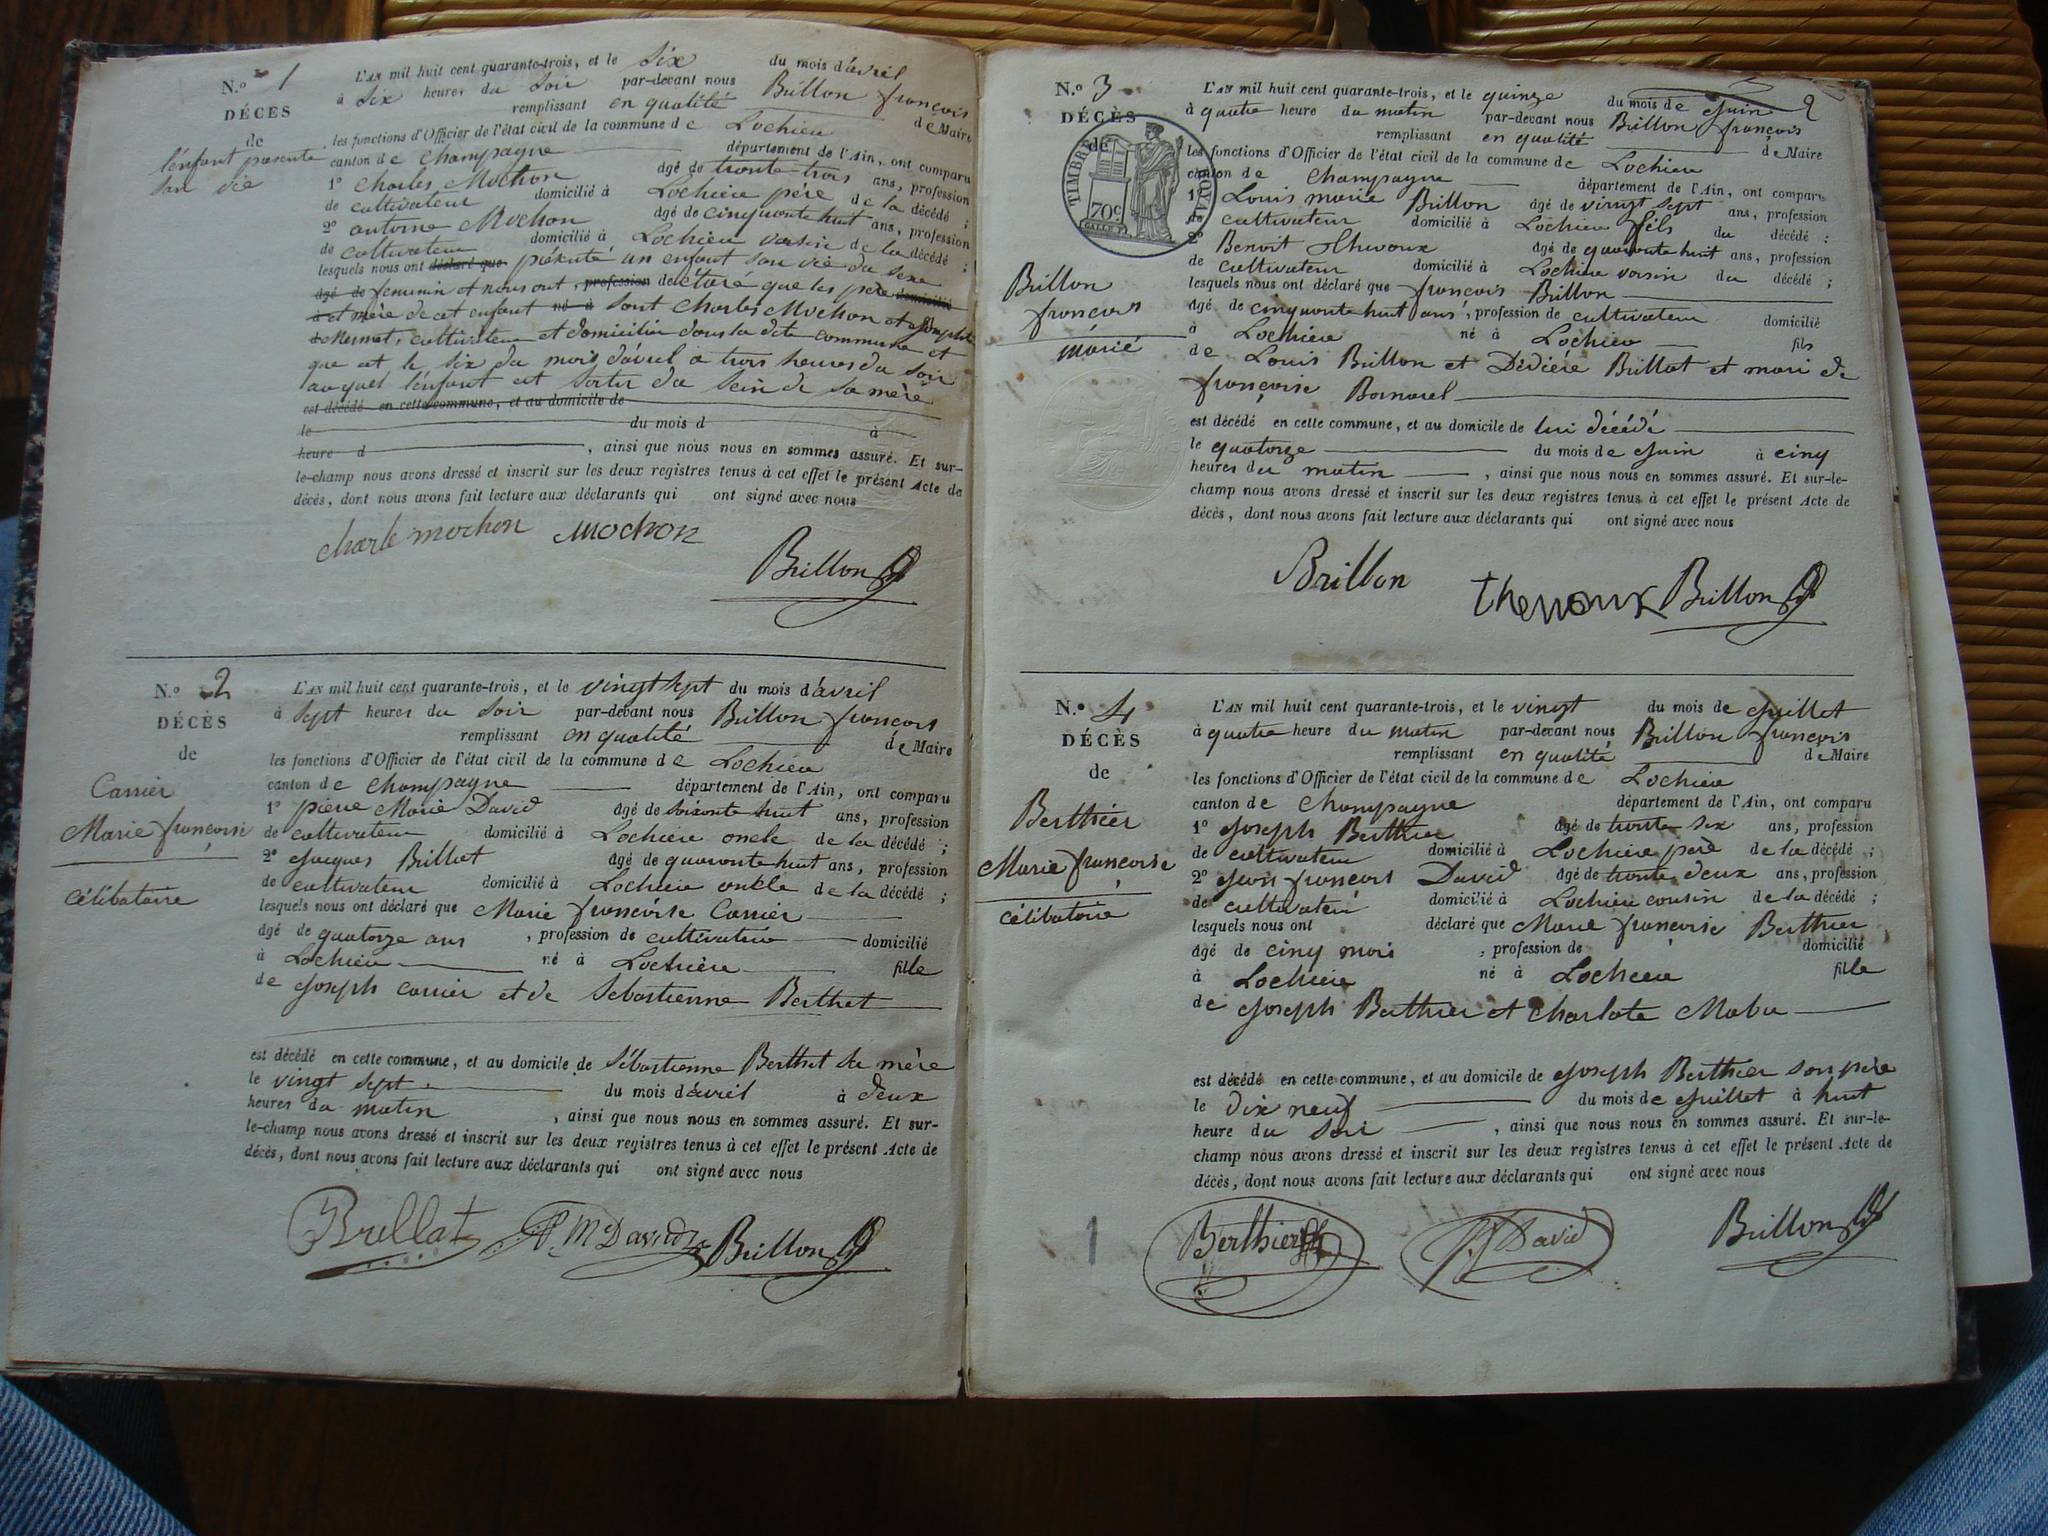 N.º 1
DÉCÈS
de
l'enfant présenté
san vie
L'AN mil huit cent quarante-trois, et le six du mois d'avril
à six heures du soir par-devant nous Brillon françois
remplissant en qualité de Maire
les fonctions d'Officier de l'état civil de la commune de Lochieu
canton de Champagne département de l'Ain, ont comparu
1º Charles Mochon âgé de trente-trois ans, profession
de cultivateur domicilié à Lochieu père de la décédé ;
2º antoine Mochon âgé de cinquante huit ans, profession
de cultivateur domicilié à Lochieu voisin de la décédé ;
lesquels nous ont déclaré que présenté un enfant san vie du sexe
âgé de femenin et nous ont, profession de déclaré que les père domicilié
à et mère de cet enfant né à sont Charles Mochon et
cultivateur et domicilié dans la dite commune et
que et le six du mois d'avril a trois heures du soir
auquel l'enfant est sortir du sein de sa mère
est décédé en cette commune, et au domicile de
le du mois d à
heure d , ainsi que nous nous en sommes assuré. Et sur-
le-champ nous avons dressé et inscrit sur les deux registres tenus à cet effet le présent Acte de
décès, dont nous avons fait lecture aux déclarants qui ont signé avec nous
charle mochon mochon
Brillon
N.º 2
DÉCÈS
de
Carrier
Marie françoise
célibataire
L'AN mil huit cent quarante-trois, et le vingt sept du mois d'avril
à sept heures du soir par-devant nous Brillon françois
remplissant en qualité de Maire
les fonctions d'Officier de l'état civil de la commune de Lochieu
canton de Champagne département de l'Ain, ont comparu
1º pierre Marie David âgé de soixante huit ans, profession
de cultivateur domicilié à Lochieu oncle de la décédé ;
2º Jacques Brillat âgé de quarante huit ans, profession
de cultivateur domicilié à Lochieu onkle de la décédé ;
lesquels nous ont déclaré que Marie françoise Carrier
âgé de quatorze ans , profession de cultivateur domicilié
à Lochieu né à Lochieu fille
de Joseph carrier et de Sebastienne Berthet
est décédé en cette commune, et au domicile de Sébastienne Berthet sa mère
le vingt sept du mois d'avril à deux
heures du matin , ainsi que nous nous en sommes assuré. Et sur-
le-champ nous avons dressé et inscrit sur les deux registres tenus à cet effet le présent Acte de
décès, dont nous avons fait lecture aux déclarants qui ont signé avec nous
Brillat P. M David Brillon
2
N.º 3
DÉCÈS
de
TIMBRE ROYAL
70 c
Brillon
françois
marié
L'AN mil huit cent quarante-trois, et le quinze du mois de Juin
à quatre heure du matin par-devant nous Brillon françois
remplissant en qualité de Maire
les fonctions d'Officier de l'état civil de la commune de Lochieu
canton de Champagne département de l'Ain, ont comparu
1º Louis marie Brillon âgé de vingt sept ans, profession
de cultivateur domicilié à Lochieu fils du décédé ;
2º Benoit Thevoux âgé de quarante huit ans, profession
de cultivateur domicilié à Lochieu voisin du décédé ;
lesquels nous ont déclaré que françois Brillon
âgé de cinquante huit ans, profession de cultivateur domicilié
à Lochieu né à Lochieu fils
de Louis Brillon et Dédière Brillat et mari de
françoise
est décédé en cette commune, et au domicile de lui décédé
le quatorze du mois de Juin à cinq
heures du matin , ainsi que nous nous en sommes assuré. Et sur-le-
champ nous avons dressé et inscrit sur les deux registres tenus à cet effet le présent Acte de
décès, dont nous avons fait lecture aux déclarants qui ont signé avec nous
Brillon Brillon
N.º 4
DÉCÈS
de
Berthier
Marie françoise
célibataire
L'AN mil huit cent quarante-trois, et le vingt du mois de Juillet
à quatre heure du matin par-devant nous Brillon françois
remplissant en qualité de Maire
les fonctions d'Officier de l'état civil de la commune de Lochieu
canton de Champagne département de l'Ain, ont comparu
1º Joseph Berthier âgé de trente six ans, profession
de cultivateur domicilié à Lochieu père de la décédé ;
2º Jean françois David âgé de trente deux ans, profession
de cultivateur domicilié à Lochieu cousin de la décédé ;
lesquels nous ont déclaré que Marie françoise Berthier
âgé de cinq mois , profession de domicilié
à Lochieu né à Lochieu fille
de Joseph Berthier et Charlote Mabu
est décédé en cette commune, et au domicile de Joseph Berthier son père
le dix neuf du mois de Juillet à huit
heure du soir , ainsi que nous nous en sommes assuré. Et sur-le-
champ nous avons dressé et inscrit sur les deux registres tenus à cet effet le présent Acte de
décès, dont nous avons fait lecture aux déclarants qui ont signé avec nous
Berthier David Brillon